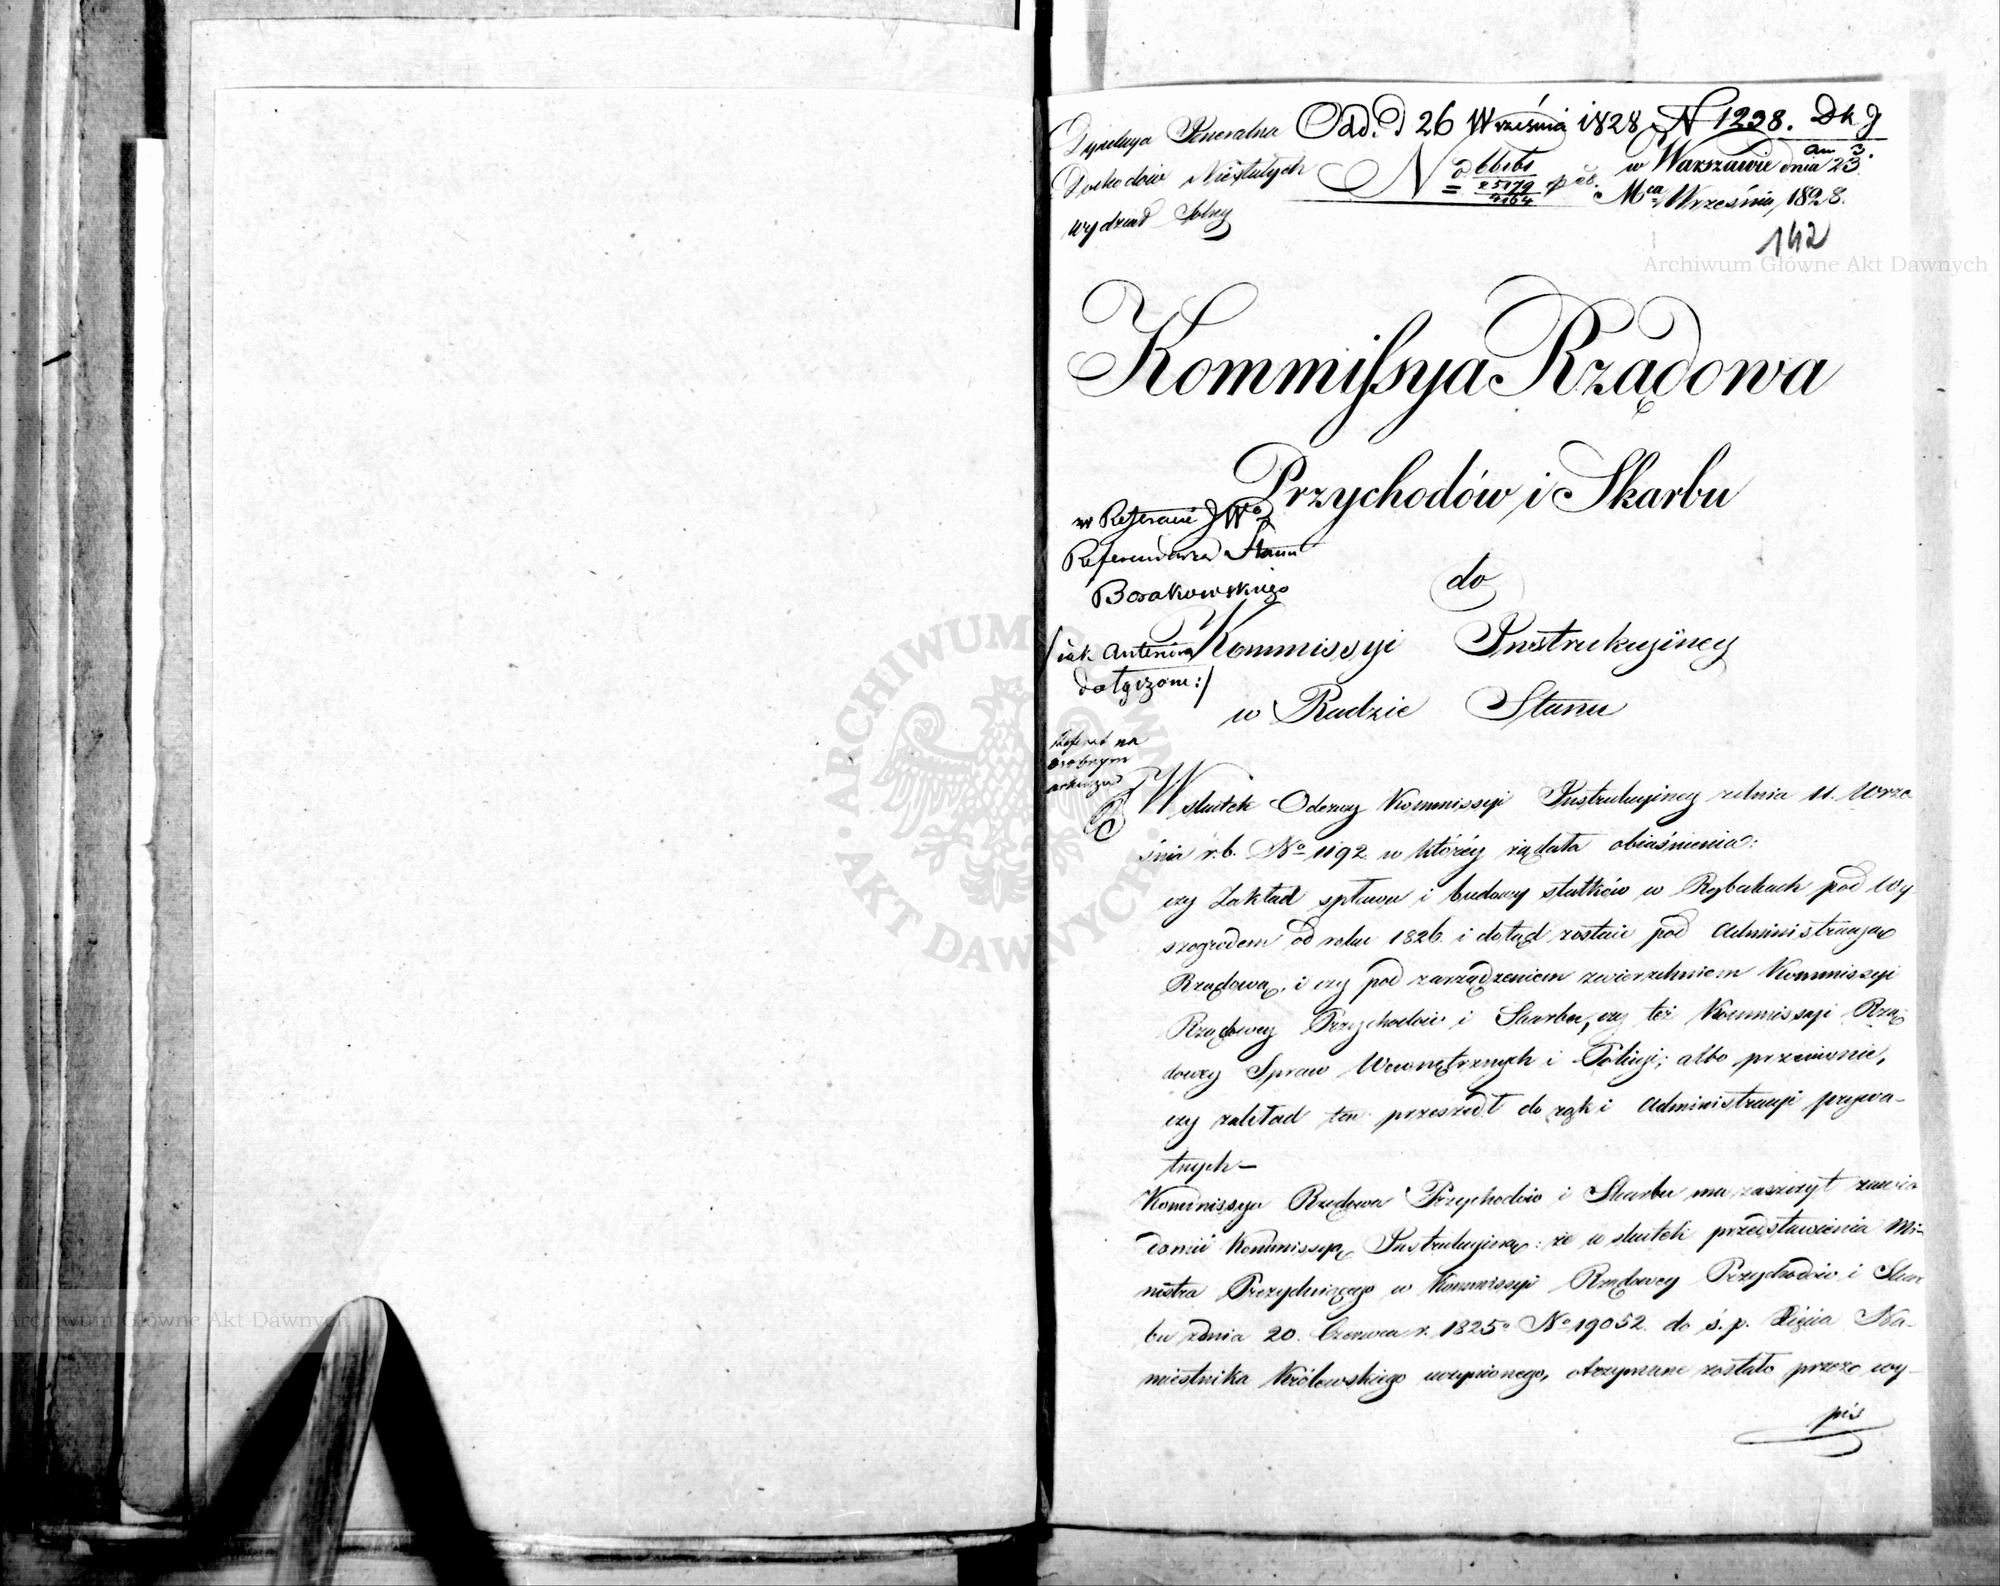 Dyrekcya Generalna
Dochodów Niestałych
Wydział Solny
Odd. d 26 Września 1828 N 1298. DkJ
an 3.
N 66161
25179
4164
w Warszawie dnia 23.
Mca Września 1828.
142
Archiwum Główne Akt Dawnych
Kommissya Rządowa
Przychodów i Skarbu
w Referacie JWo
Referendarza Stanu
Borakowskiego
do
Kommissyi Instrukcyiney
/:iak Anteriora
dołączone:/
w Radzie Stanu
Referat na
osobnym
arkuszu
W skutek Odezwy Kommissyi Instrukcyiney z dnia 11. Wrze
śnia r.b. No 1192. w któréy żądała obiaśnienia:
czy Zakład spławu i budowy statków w Rybakach pod Wy
szogrodem od roku 1826. i dotąd zostaie pod Administracyą
Rządową, i czy pod zarządzeniem zwierzchniem Kommissyi
Rządowey Przychodów i Skarbu, czy też Kommissyi Rzą
dowey Spraw Wewnętrznych i Policyi; albo przeciwnie,
czy zakład ten przeszedł do rąk i Administracyi prywa-
tnych-
Kommissya Rządowa Przychodów i Skarbu ma zaszczyt zawia
domić Kommissyą Instrukcyiną: że w skutek przedstawienia Mi-
nistra Prezyduiącego w Kommissyi Rządowey Przychodów i Skar
bu z dnia 20. Czerwca r. 1825o No 19052. do ś. p. Xięcia Na-
miestnika Królewskiego uczynionego, otrzymane zostało przez wy-
pis
ARCHIWUM GŁÓWNE AKT DAWNYCH
Archiwum Główne Akt Dawnych